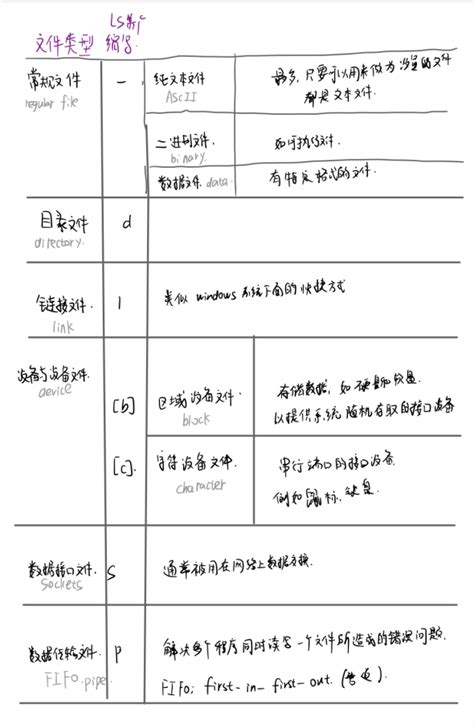 LS显示
文件类型 缩写.
常规文件 — 纯文本文件 最多, 只要可以用来做为设置的文件
regular file ASCII 都是文本文件.
二进制文件. 如可执行文件.
binary.
数据文件. data. 有特定格式的文件.
目录文件 d
directory.
链接文件. l 类似 windows 系统下面的快捷方式
link
设备与设备文件.
device
[b] 区域设备文件. 存储数据, 如硬盘和软盘.
block 以提供系统随机存取的接口设备
[c]. 字符设备文件. 串行端口的接口设备.
character 例如鼠标, 键盘.
数据接口文件. s 通常被用在网络上数据交换.
Sockets
数据传输文件. p 解决多个程序同时读写一个文件所造成的错误问题.
FIFO.pipe FIFO; first-in-first-out. (管道).